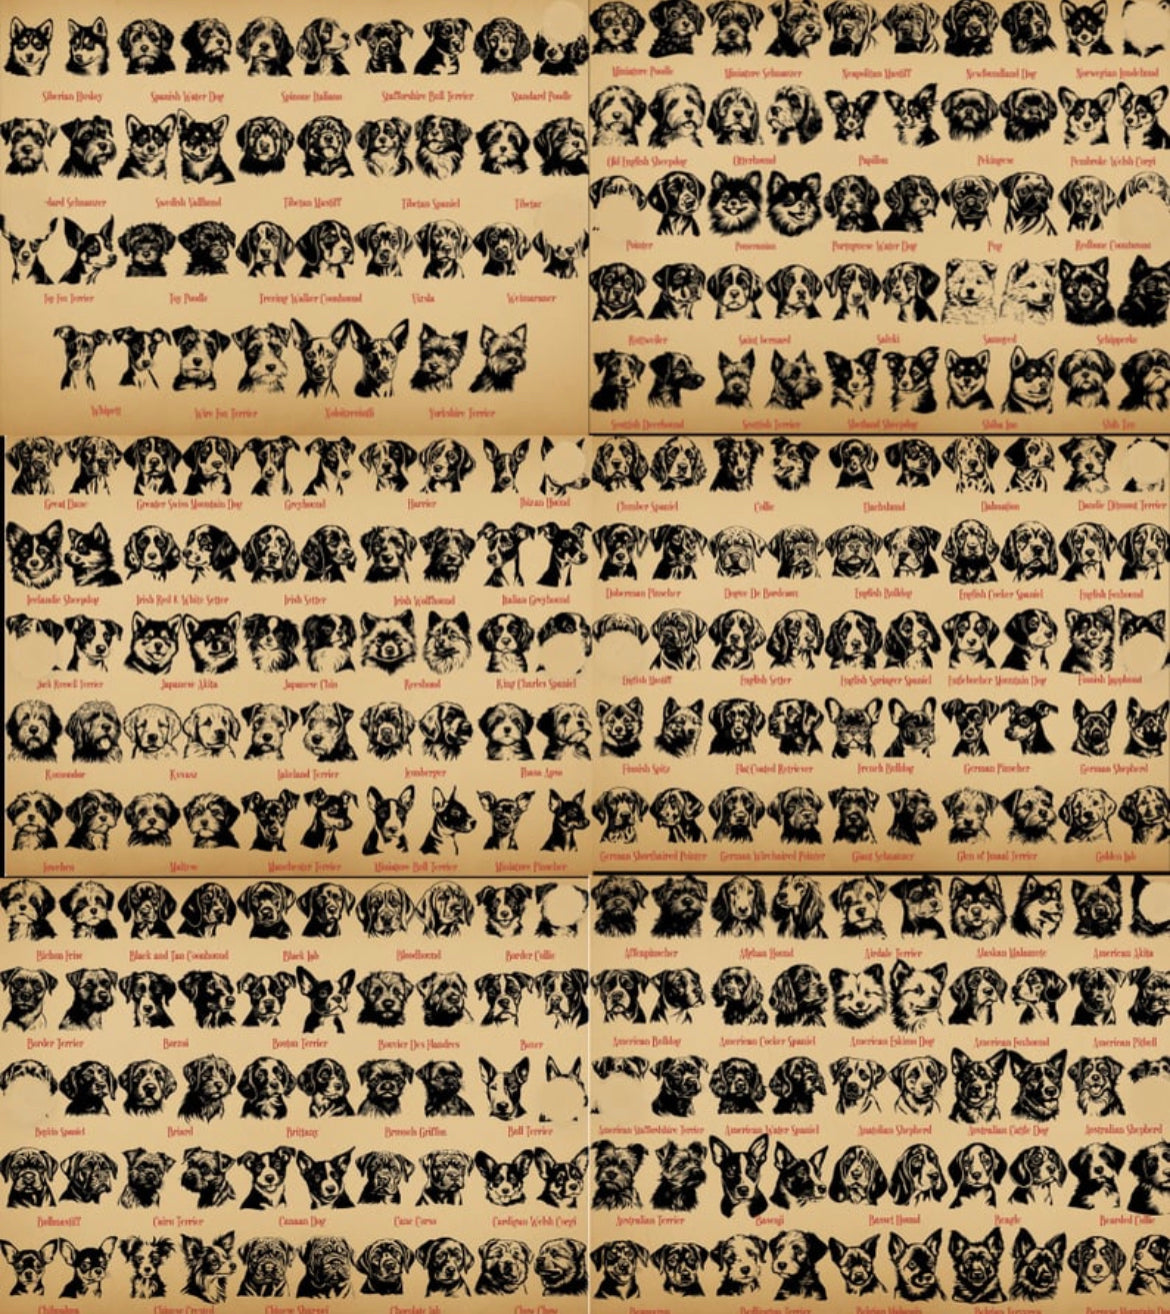 Siberian Husky Spanish Water Dog Spinone Italiano Staffordshire Bull Terrier Standard Poodle
dard Schnauzer Swedish Vallhund Tibetan Mastiff Tibetan Spaniel Tibetar
Toy Fox Terrier Toy Poodle Treeing Walker Coonhound Vizsla Weimaraner
Whipett Wire Fox Terrier Yorkshire Terrier
Miniature Poodle Miniature Schnauzer Neapolitan Mastiff Newfoundland Dog Norwegian Lundehund
Old English Sheepdog Otterhound Papillon Pekingese Pembroke Welsh Corgi
Pointer Pomeranian Portuguese Water Dog Pug Redbone Coonhound
Rottweiler Saint bernard Saluki Samoyed Schipperke
Scottish Deerhound Scottish Terrier Shetland Sheepdog Shiba Inu Shih Tzu
Great Dane Greater Swiss Mountain Dog Greyhound Harrier Ibizan Hound
Icelandic Sheepdog Irish Red & White Setter Irish Setter Irish Wolfhound Italian Greyhound
Jack Russell Terrier Japanese Akita Japanese Chin Keeshond King Charles Spaniel
Komondor Kuvasz Lakeland Terrier Leonberger Lhasa Apso
Lowchen Maltese Manchester Terrier Miniature Bull Terrier Miniature Pinscher
Clumber Spaniel Collie Dachshund Dalmation Dandie Dinmont Terrier
Doberman Pinscher Dogue De Bordeaux English Bulldog English Cocker Spaniel English Foxhound
English Mastiff English Setter English Springer Spaniel Entlebucher Mountain Dog Finnish Lapphund
Finnish Spitz Flat Coated Retriever French Bulldog German Pinscher German Shepherd
German Shorthaired Pointer German Wirehaired Pointer Giant Schnauzer Glen of Imaal Terrier Golden Lab
Bichon Frise Black and Tan Coonhound Black Lab Bloodhound Border Collie
Border Terrier Borzoi Boston Terrier Bouvier Des Flandres Boxer
Boykin Spaniel Briard Brittany Brussels Griffon Bull Terrier
Bullmastiff Cairn Terrier Canaan Dog Cane Corso Cardigan Welsh Corgi
Chihuahua Chinese Crested Chinese Sharpei Chocolate Lab Chow Chow
Affenpinscher Afghan Hound Airdale Terrier Alaskan Malamute American Akita
American Bulldog American Cocker Spaniel American Eskimo Dog American Foxhound American Pitbull
American Staffordshire Terrier American Water Spaniel Anatolian Shepherd Australian Cattle Dog Australian Shepherd
Australian Terrier Basenji Basset Hound Beagle Bearded Collie
Bedlington Terrier Belgian Malinois